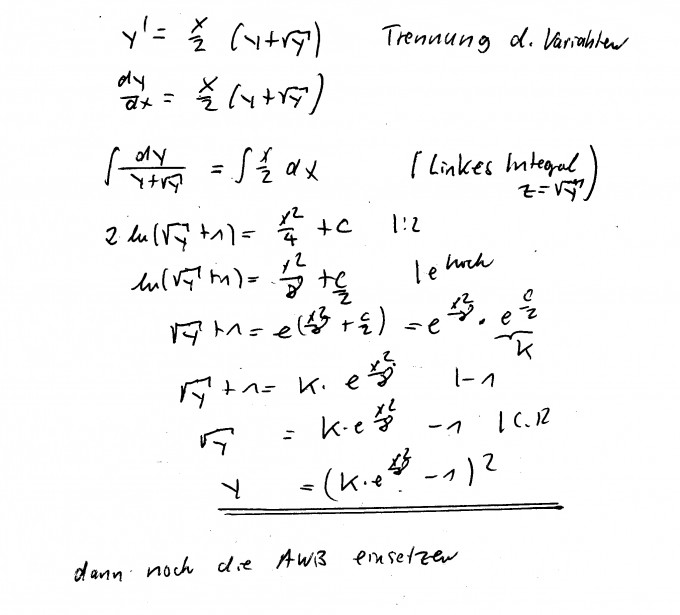 y' = x/2 (y+√y) Trennung d. Variablen
dy/dx = x/2 (y+√y)
∫ dy/(y+√y) = ∫ x/2 dx (Linkes Integral z=√y)
2 ln(√y +1) = x²/4 + C |:2
ln(√y +1) = x²/8 + C/2 | e hoch
√y +1 = e^(x²/8 + C/2) = e^(x²/8) · e^(C/2)
K
√y +1 = K · e^(x²/8) |-1
√y = K·e^(x²/8) -1 |()²
y = (K·e^(x²/8) -1)²
dann noch die AWB einsetzen